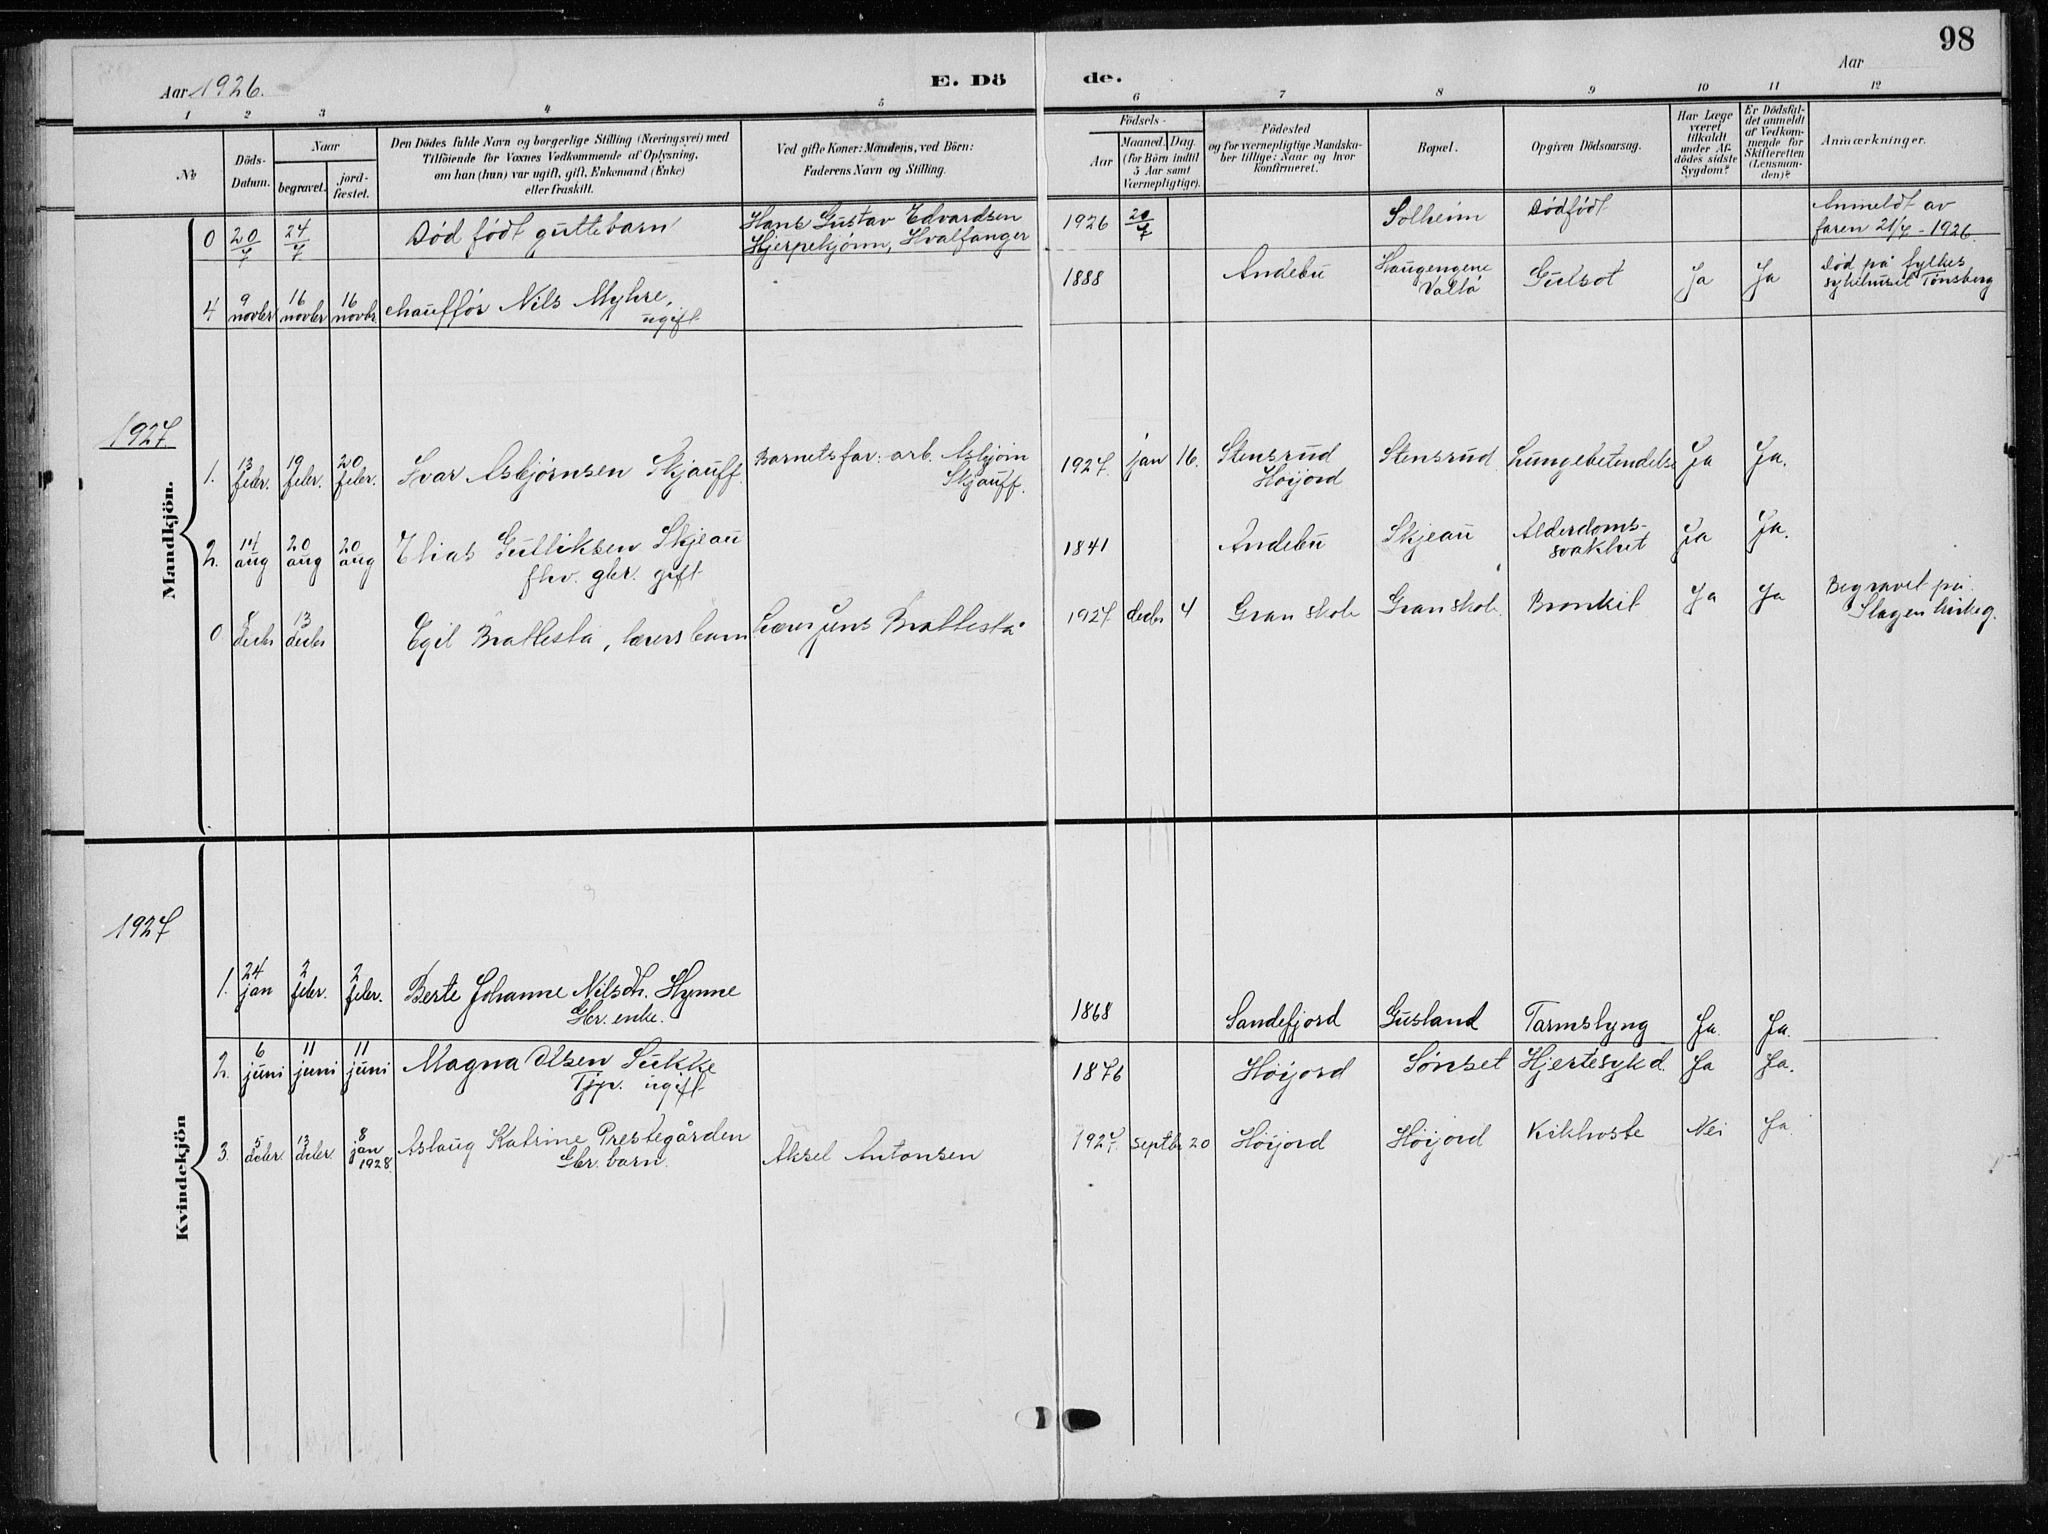 98
Aar 1926.
E. Dö de.
Aar
1 2 3 4 5 6 7 8 9 10 11 12
№
Döds-
Datum.
Naar
begravet.
jord-
fæstet.
Den Dödes fulde Navn og borgerlige Stilling (Næringsvei) med
Tilföiende for Voxnes Vedkommende af Oplysning,
om han (hun) var ugift, gift, Enkemand (Enke)
eller fraskilt.
Ved gifte Koner: Mandens, ved Börn:
Faderens Navn og Stilling.
Födsels-
Aar
Maaned. Dag.
(for Börn indtil
5 Aar samt
Værnepligtige).
Födested
og for værnepligtige Mandska-
ber tillige: Naar og hvor
konfirmeret.
Bopæl.
Opgiven Dödsaarsag.
Har Læge
været
tilkaldt
under Af-
dödes sidste
Sygdom?
Er Dödsfal-
det anmeldt
af Vedkom-
mende for
Skifteretten
(Lensman-
den)?
Anmærkninger.
Mandkjön.
0 20/7 24/7 Død født guttebarn Hans Gustav Edvardsen
Hjerpekjønn, Hvalfanger
1926 20/7 Solheim Dødfødt Anmeldt av
faren 21/7 - 1926.
4 9 novbr 16 novbr 16 novbr chauffør Nils Myhre,
ugift
1888 Andebu Haugengene
Vallø
Gulsot Ja Ja Død på fylkes
sykehuset Tønsberg
1927
1. 13 febr. 19 febr. 20 febr. Ivar Asbjørnsen Skjauff. Barnets far: arb. Asbjørn
Skjauff.
1927. jan 16. Stensrud
Høijord
Stensrud Lungebetendelse Ja Ja.
2. 14 aug 20 aug 20 aug Elias Gulliksen Skjeau
fhv. gbr. gift
1841 Andebu Skjeau Alderdoms-
svakhet
Ja Ja.
0 8 decbr 13 decbr Egil Brattestå, lærers barn Lærer Jens Brattestå
1927 decbr 4 Gran skole Gran skole Bronkit Ja Ja Begravet på
Slagen kirkeg.
Kvindekjön
1927
1. 24 jan 2 febr. 2 febr. Berte Johanne Nilsdt. Hynne
Gbr. enke.
1868 Sandefjord Gusland Tarmslyng Ja. Ja.
2. 6 juni 11 juni 11 juni Magna Olsen Sukke
Tjp. ugift
1876 Høijord Sønset Hjertesykd. Ja Ja.
3. 5 decbr. 13 decbr. 8 jan 1928. Aslaug Katrine Prestegården
Gbr. barn.
Aksel Antonsen
1927. septbr 20 Høijord Høijord Kikhoste Nei Ja